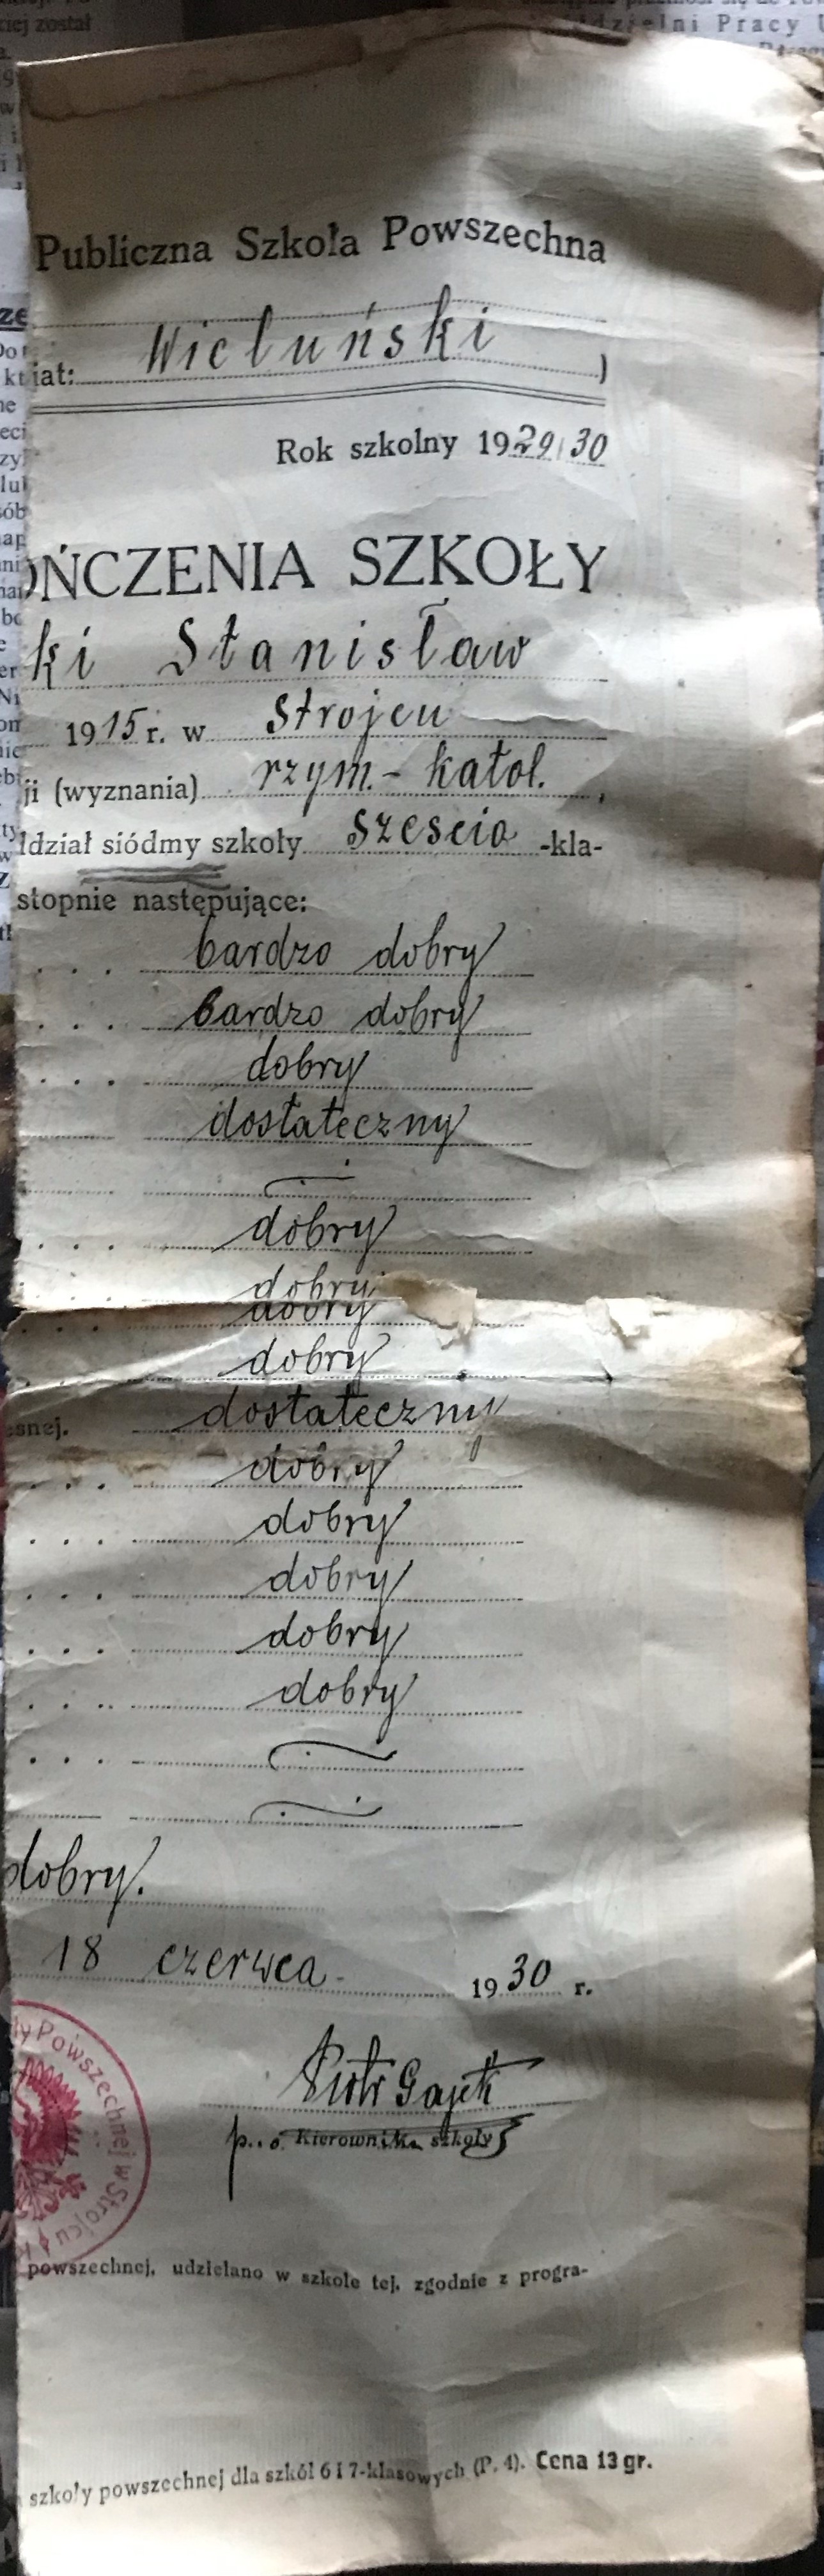 Publiczna Szkoła Powszechna
iat: Wieluński )
Rok szkolny 1929/30
OŃCZENIA SZKOŁY
ki Stanisław
1915 r. w Strojcu
ji (wyznania) rzym.-katol.,
dział siódmy szkoły sześcio -kla-
stopnie następujące:
bardzo dobry
bardzo dobry
dobry
dostateczny
dobry
dobry
dobry
dobry
esnej. dostateczny
dobry
dobry
dobry
dobry
dobry
dobry.
18 czerwca 1930 r.
y Powszechnej w Strojcu
Piotr Gajek
p. o. Kierownika szkoły
powszechnej, udzielano w szkole tej, zgodnie z progra-
szkoły powszechnej dla szkół 6 i 7-klasowych (P. 4). Cena 13 gr.